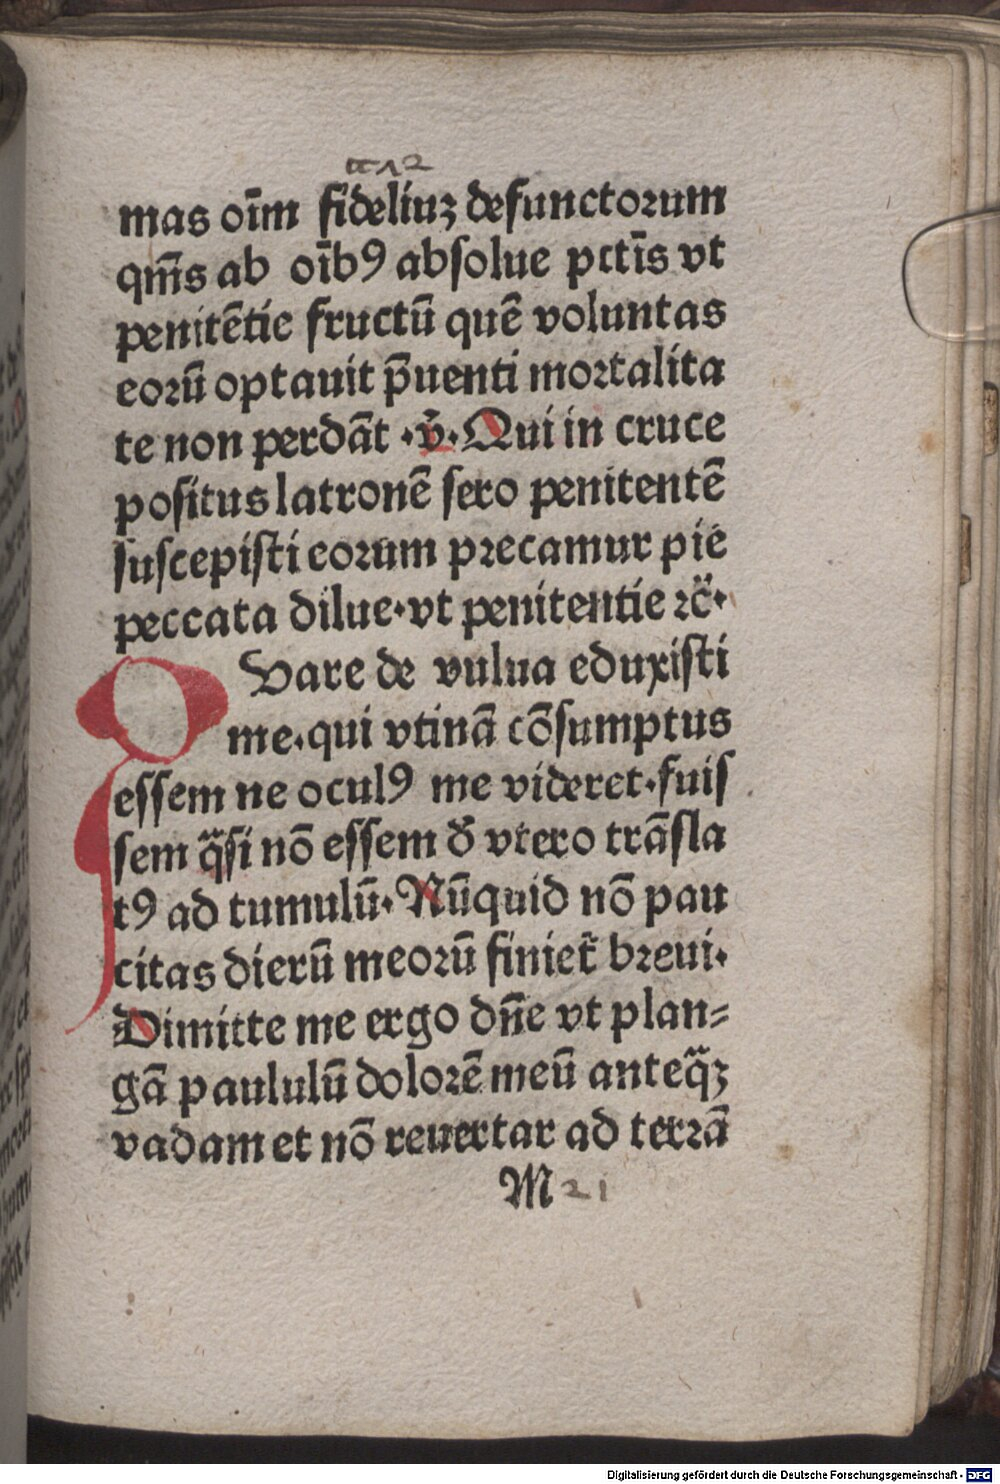 mas oīm fideliuꝫ defunctorum
qm̄s ab oībꝰ absolue pctīs vt
penitētie fructū quē voluntas
eorū optauit p̄uenti mortalita
te non perdāt ·v̄· Qui in cruce
positus latronē sero penitentē
suscepisti eorum precamur pie
peccata dilue· vt penitentie ⁊c̄·
QVare de vulua eduxisti
me· qui vtinā cōsumptus
essem ne oculꝰ me videret· fuis
sem qᷓsi nō essem đ vtero trāsla
tꝰ ad tumulū· Nūquid nō pau
citas dierū meorū finiet᷑ breui·
Dimitte me ergo dn̄e vt plan⸗
gā paululū dolorē meū anteqᷓꝫ
vadam et nō reuertar ad terrā
M 21
Digitalisierung gefördert durch die Deutsche Forschungsgemeinschaft - DFG